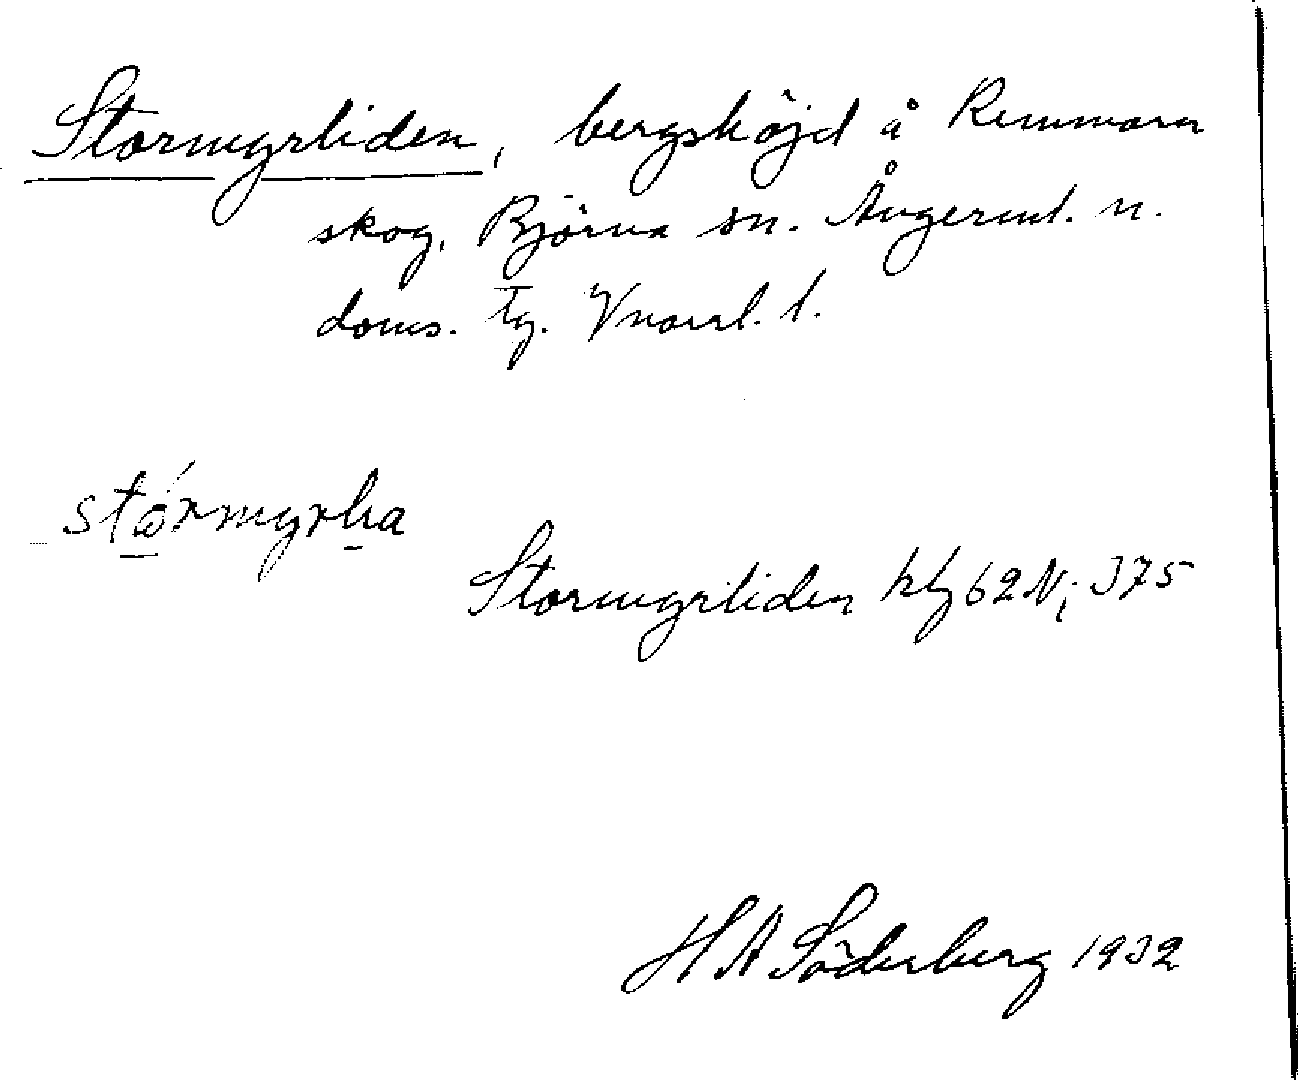 Stormyrliden, bergshöjd å Remmarn
skog, Björna sn. Ångerml. n.
doms. tg. Vnorrl. l.
Stormyrliden hlj 62 N; 375
H A Söderberg 1932